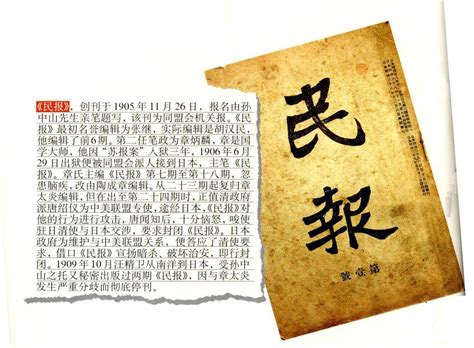 《民报》，创刊于1905年11月26日，报名由孙
中山先生亲笔题写，该刊为同盟会机关报。《民
报》最初名誉编辑为张继，实际编辑是胡汉民，
他编辑了前6期。第二任笔政为章炳麟，章是国
学大师，他因“苏报案”人狱三年，1906年6月
29日出狱便被同盟会派人接到日本，主笔《民
报》。章氏主编《民报》第七期至第十八期，忽
患脑疾，改由陶成章编辑。从二十三期起复归章
太炎编辑，但在出至第二十四期时，正值清政府
派唐绍仪为中美联盟专使，途经日本，《民报》对
他的行为进行攻击，唐闻知后，十分恼怒，唆使
驻日清使与日本交涉，要求封闭《民报》。日本
政府为维护与中美联盟关系，便答应了清使要
求，借口《民报》宣扬暗杀、破坏治安，即行封
闭。1909年10月汪精卫从南洋到日本，受孙中
山之托又秘密出版过两期《民报》，因与章太炎
发生严重分歧而彻底停刊。
民報
第壹號